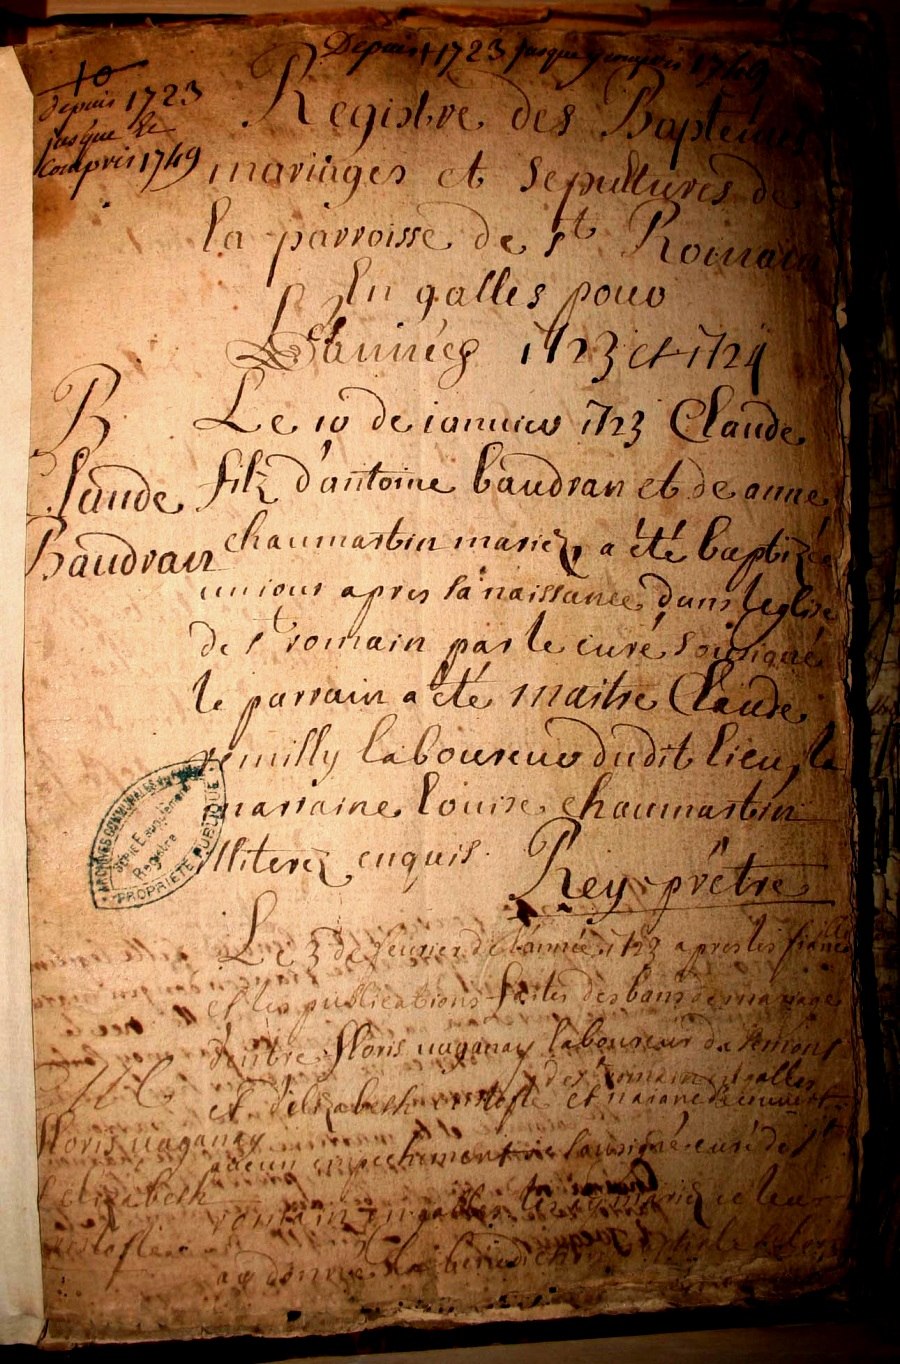 Depuis 1723 jusque y compris 1749
10
depuis 1723
jusque et
compris 1749
Registre des Baptemes
mariages et sepultures de
la parroisse de st Romain
En galles pour
Les années 1723 et 1724
B
Claude
Baudran
Le 10 de ianuier 1723 Claude
filz d'antoine baudran et de anne
chaumartin mariez, a été baptizé
un iour apres sa naissance dans leglise
de st romain par le curé soussigné
le parrain a été maitre Claude
remilly laboureur dudit lieu, la
marraine louise chaumartin
illiterez enquis. Rey prêtre
ARCHIVES COMMUNALES
Série E
Registre
PROPRIÉTÉ PUBLIQUE
Le 3 de feurier de l'année 1723 apres les fiancailles
et les publications faites des bans de mariage
d'entre floris uaganay laboureur de
de st romain en galles
et d'elizabeth et
M
floris uaganay
elizabeth
aucun empechement ie soussigné curé de st
romain en galles les ay mariez et leur
ay donné la benediction